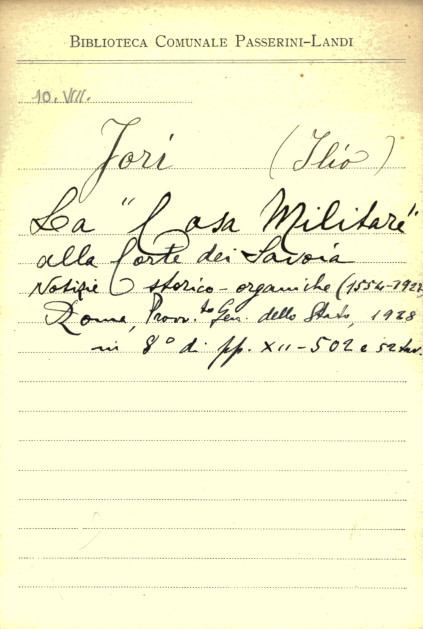 BIBLIOTECA COMUNALE PASSERINI-LANDI
10. VIII.
Jori (Ilio)
La "Casa Militare"
alla Corte dei Savoia
Notizie storico-organiche (1554-1927
Roma, Provv.to Gen. dello Stato, 1928
in 8° di pp. XII-502 e 52 tav.